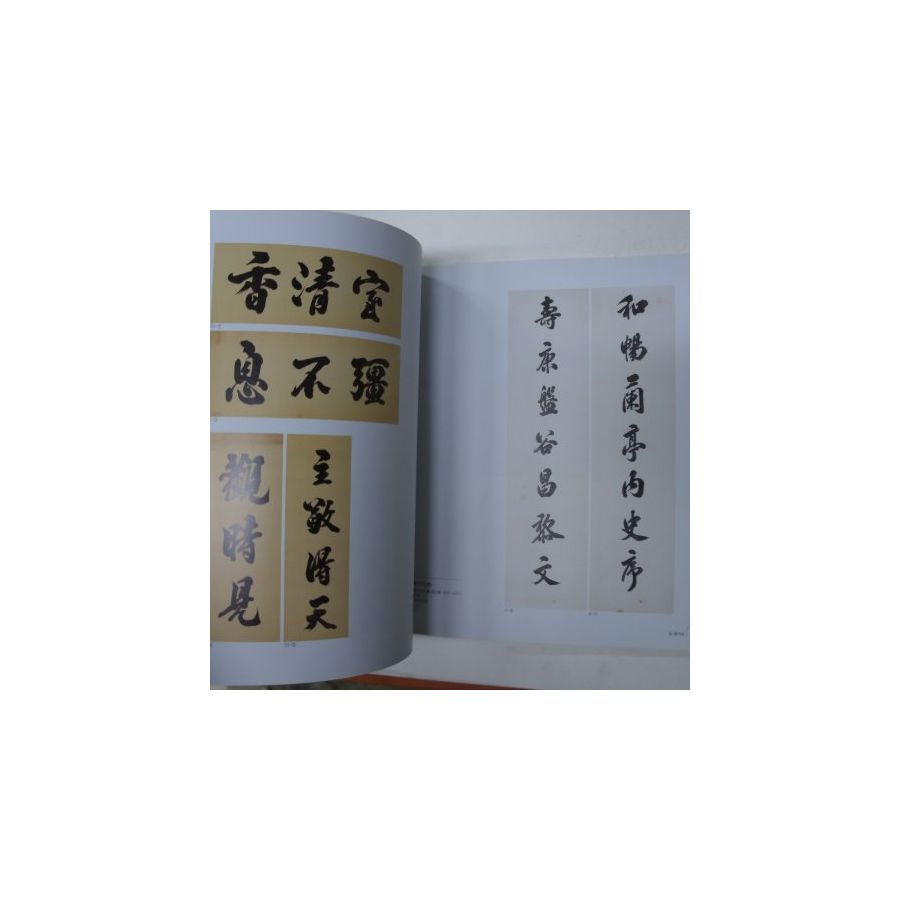 室清香
彊不息
主敬淂天
觀時見
和暢蘭亭内史序
壽康盤谷昌黎文